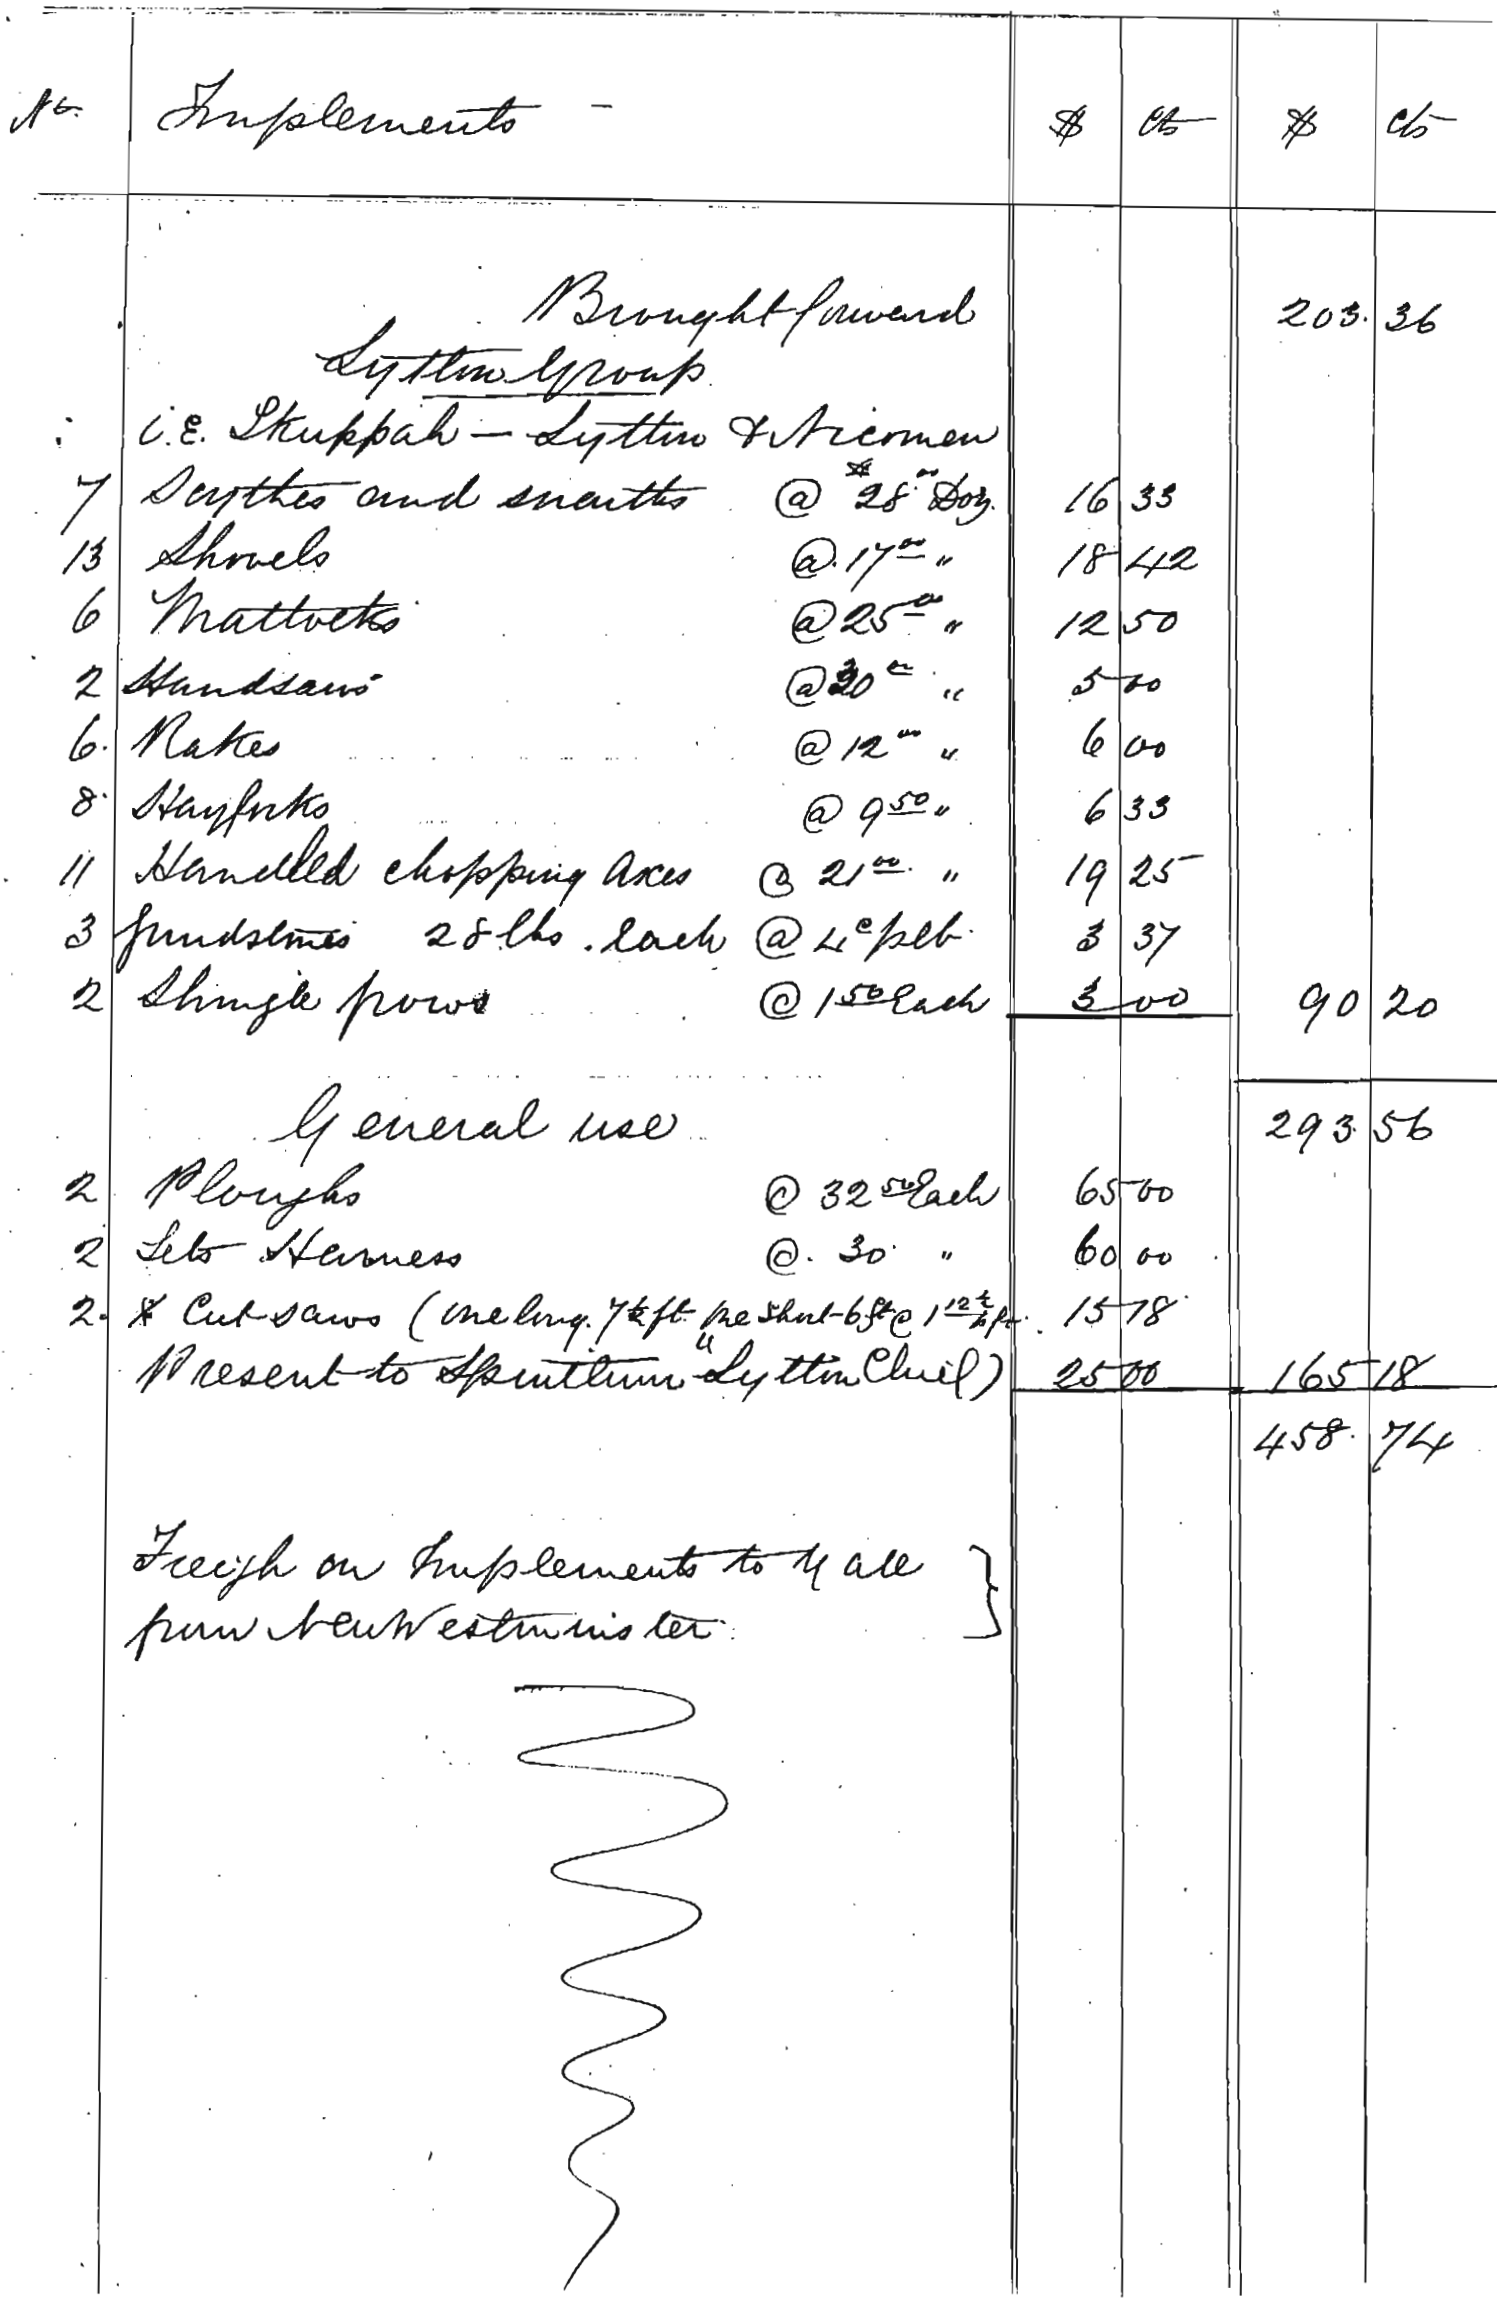 No. Implements - $ cts $ cts
Brought forward 203. 36
Lytton Group
i.e. Skuppah - Lytton & Nicomen
7 Scythes and sneaths @ $28.00 Doz. 16 33
13 Shovels @ 17 00 " 18 42
6 Mattocks @ 25 00 " 12 50
2 Handsaws @ 30 00 " 5 00
6. Rakes @ 12 00 " 6 00
8 Hayforks @ 9 50 " 6 33
11 Handled chopping Axes @ 21 00 " 19 25
3 Grindstones 28 lbs. each @ 4c pr lb. 3 37
2 Shingle frows @ 1 50 Each 3 00 90 20
General use 293. 56
2 Ploughs @ 32 50 Each 65 00
2 Sets Harness @. 30 " 60 00
2. X Cut saws (one long. 7½ ft one short 6 ft @ 1 12½ pr. 15 18
Present to Spintlum "Lytton Chief) 25 00 165 18
458. 74
Freigh on Implements to Yale }
from New Westminister.